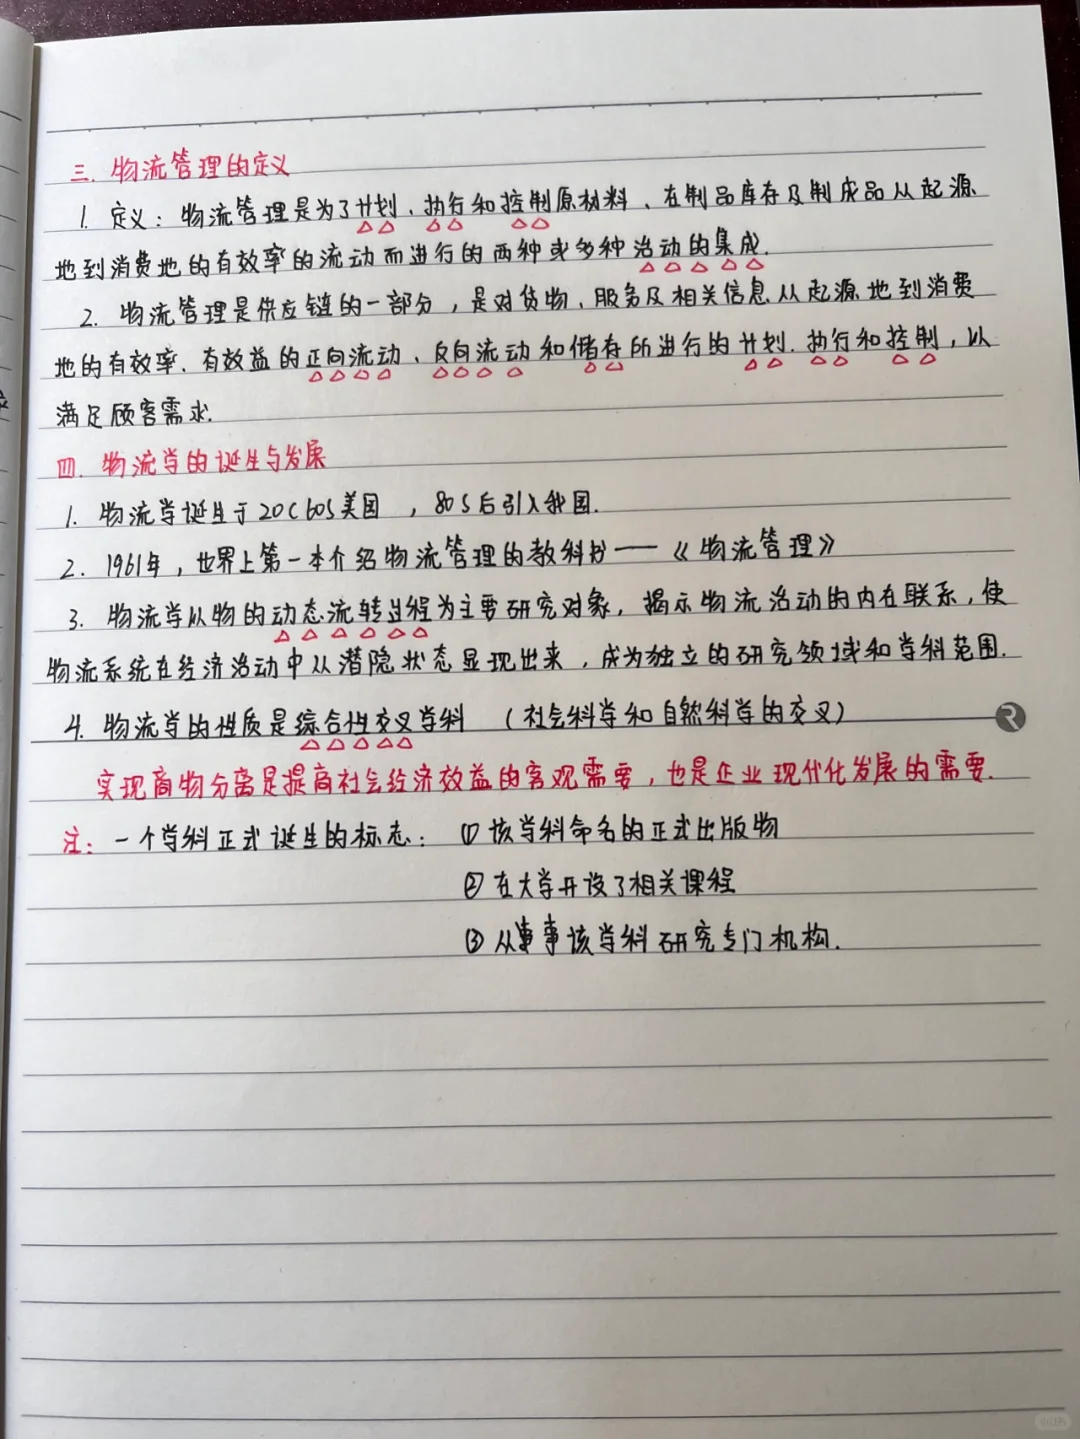 三. 物流管理的定义
1. 定义：物流管理是为了计划、执行和控制原材料、在制品库存及制成品从起源
地到消费地的有效率的流动而进行的两种或多种活动的集成.
2. 物流管理是供应链的一部分，是对货物、服务及相关信息从起源地到消费
地的有效率、有效益的正向流动、反向流动和储存所进行的计划、执行和控制，以
满足顾客需求.
四. 物流学的诞生与发展
1. 物流学诞生于20C60S美国，80S后引入我国.
2. 1961年，世界上第一本介绍物流管理的教科书——《物流管理》
3. 物流学从物的动态流转过程为主要研究对象，揭示物流活动的内在联系，使
物流系统在经济活动中从潜隐状态显现出来，成为独立的研究领域和学科范围.
4. 物流学的性质是综合性交叉学科 （社会科学和自然科学的交叉）
实现商物分离是提高社会经济效益的客观需要，也是企业现代化发展的需要.
注：一个学科正式诞生的标志：①该学科命名的正式出版物
②在大学开设了相关课程
③从事该学科研究专门机构.